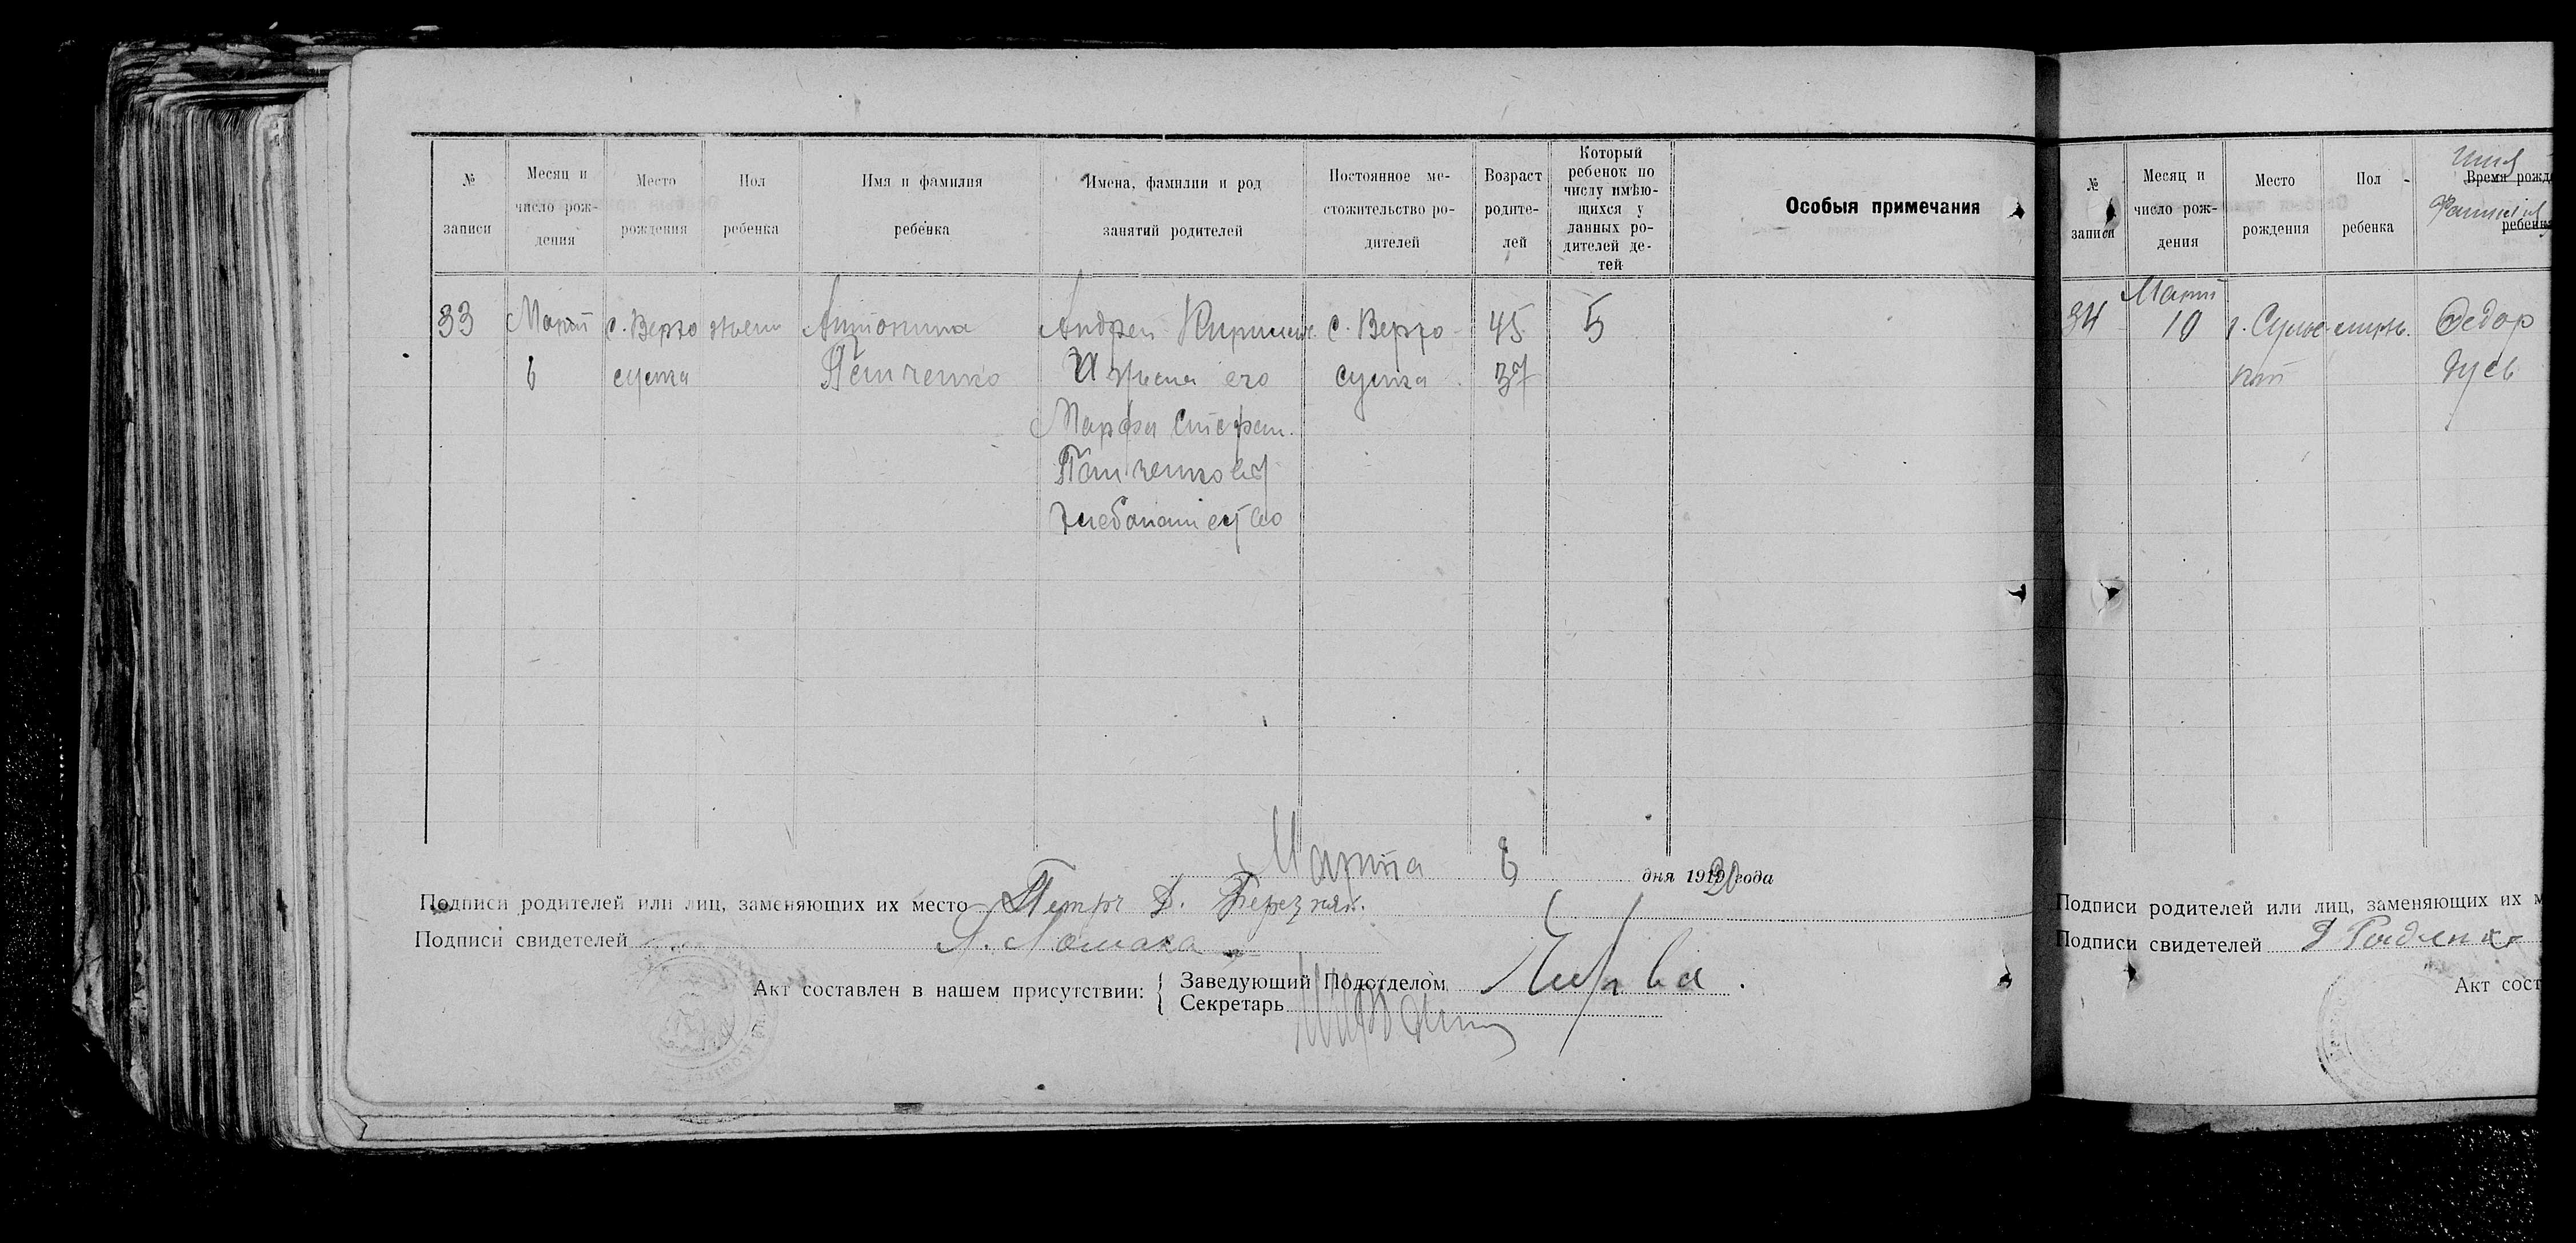 № записи
Месяц и число рож-дения
Место рождения
Пол ребенка
Имя и фамилия ребенка
Имена, фамилии и род занятий родителей
Постоянное ме-стожительство ро-дителей
Возраст родите-лей
Который ребенок по числу имѣю-щихся у данных ро-дителей де-тей
Особыя примечания
33 Март с. Верхо женс Антонина Андрей Кирилл. с. Верхо- 45 5
6 сулка Петченко И жена его сулка 37
Марфа Стефан.
Петченкова
Хлебопашество
Марта 6 дня 1920 года
Подписи родителей или лиц, заменяющих их место Петръ Д. Березняк.
Подписи свидетелей
Акт составлен в нашем присутствии:
Заведующий Подотделом
Секретарь
№ записи
Месяц и число рож-дения
Место рождения
Пол ребенка
Имя
Время рожд
Фамилия
ребенка
34 Март
10 Федор
Гусь
Подписи родителей или лиц, заменяющих их м
Подписи свидетелей
Акт сост